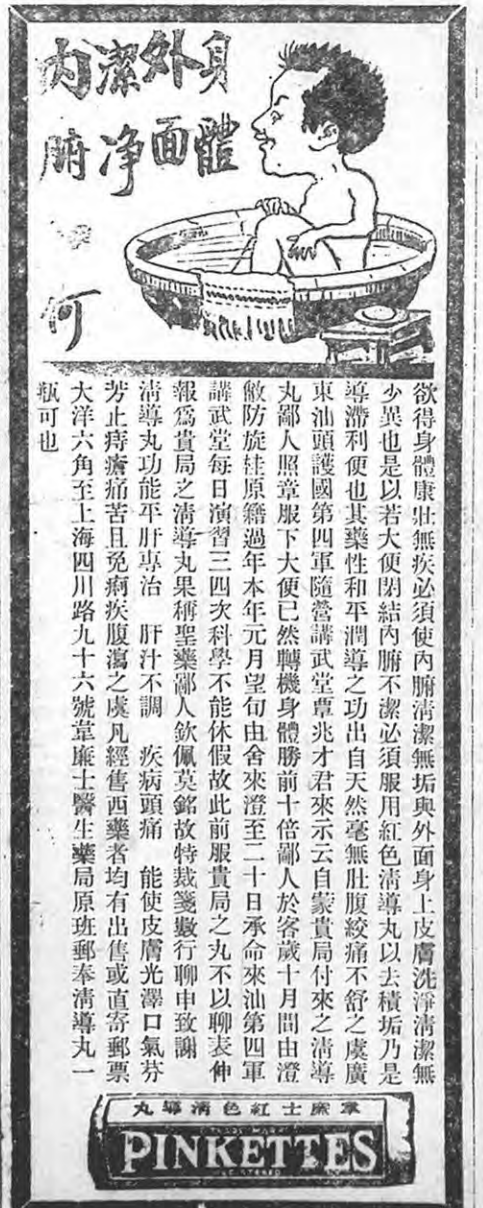 身體
外面
潔净
内腑 何
欲得身體康壯無疾必須使內腑清潔無垢與外面身上皮膚洗淨清潔無
少異也是以若大便閉結內腑不潔必須服用紅色清導丸以去積垢乃是
導滯利便也其藥性和平潤導之功出自天然毫無肚腹絞痛不舒之虞廣
東汕頭護國第四軍隨營講武堂覃兆才君來示云自蒙貴局付來之清導
丸鄙人照章服下大便已然轉機身體勝前十倍鄙人於客歲十月間由澄
散防旋桂原籍過年本年元月望旬由舍來澄至二十日承命來汕第四軍
講武堂每日演習三四次科學不能休假故此前服貴局之丸不以聊表伸
報爲貴局之清導丸果稱聖藥鄙人欽佩莫銘故特裁箋數行聊申致謝
清導丸功能平肝專治 肝汁不調 疾病頭痛 能使皮膚光澤口氣芬
芳止痔瘡痛苦且免痢疾腹瀉之虞凡經售西藥者均有出售或直寄郵票
大洋六角至上海四川路九十六號韋廉士醫生藥局原班郵奉清導丸一
瓶可也
韋廉士紅色清導丸
TRADE MARK
PINKETTES
REGISTERED